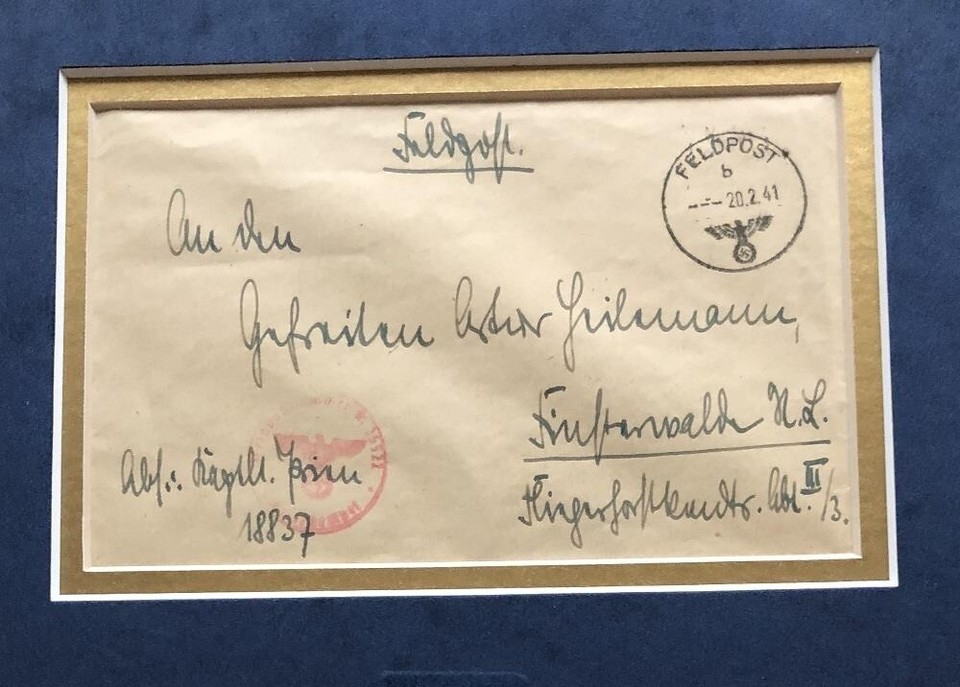 Feldpost.
FELDPOST
b
20.2.41
An den
Gefreiten Artur Heilemann,
Finsterwalde N.L.
Fliegerhorstkandtr. Abt. III/3.
Abs.: Kaptlt. Prien
18837